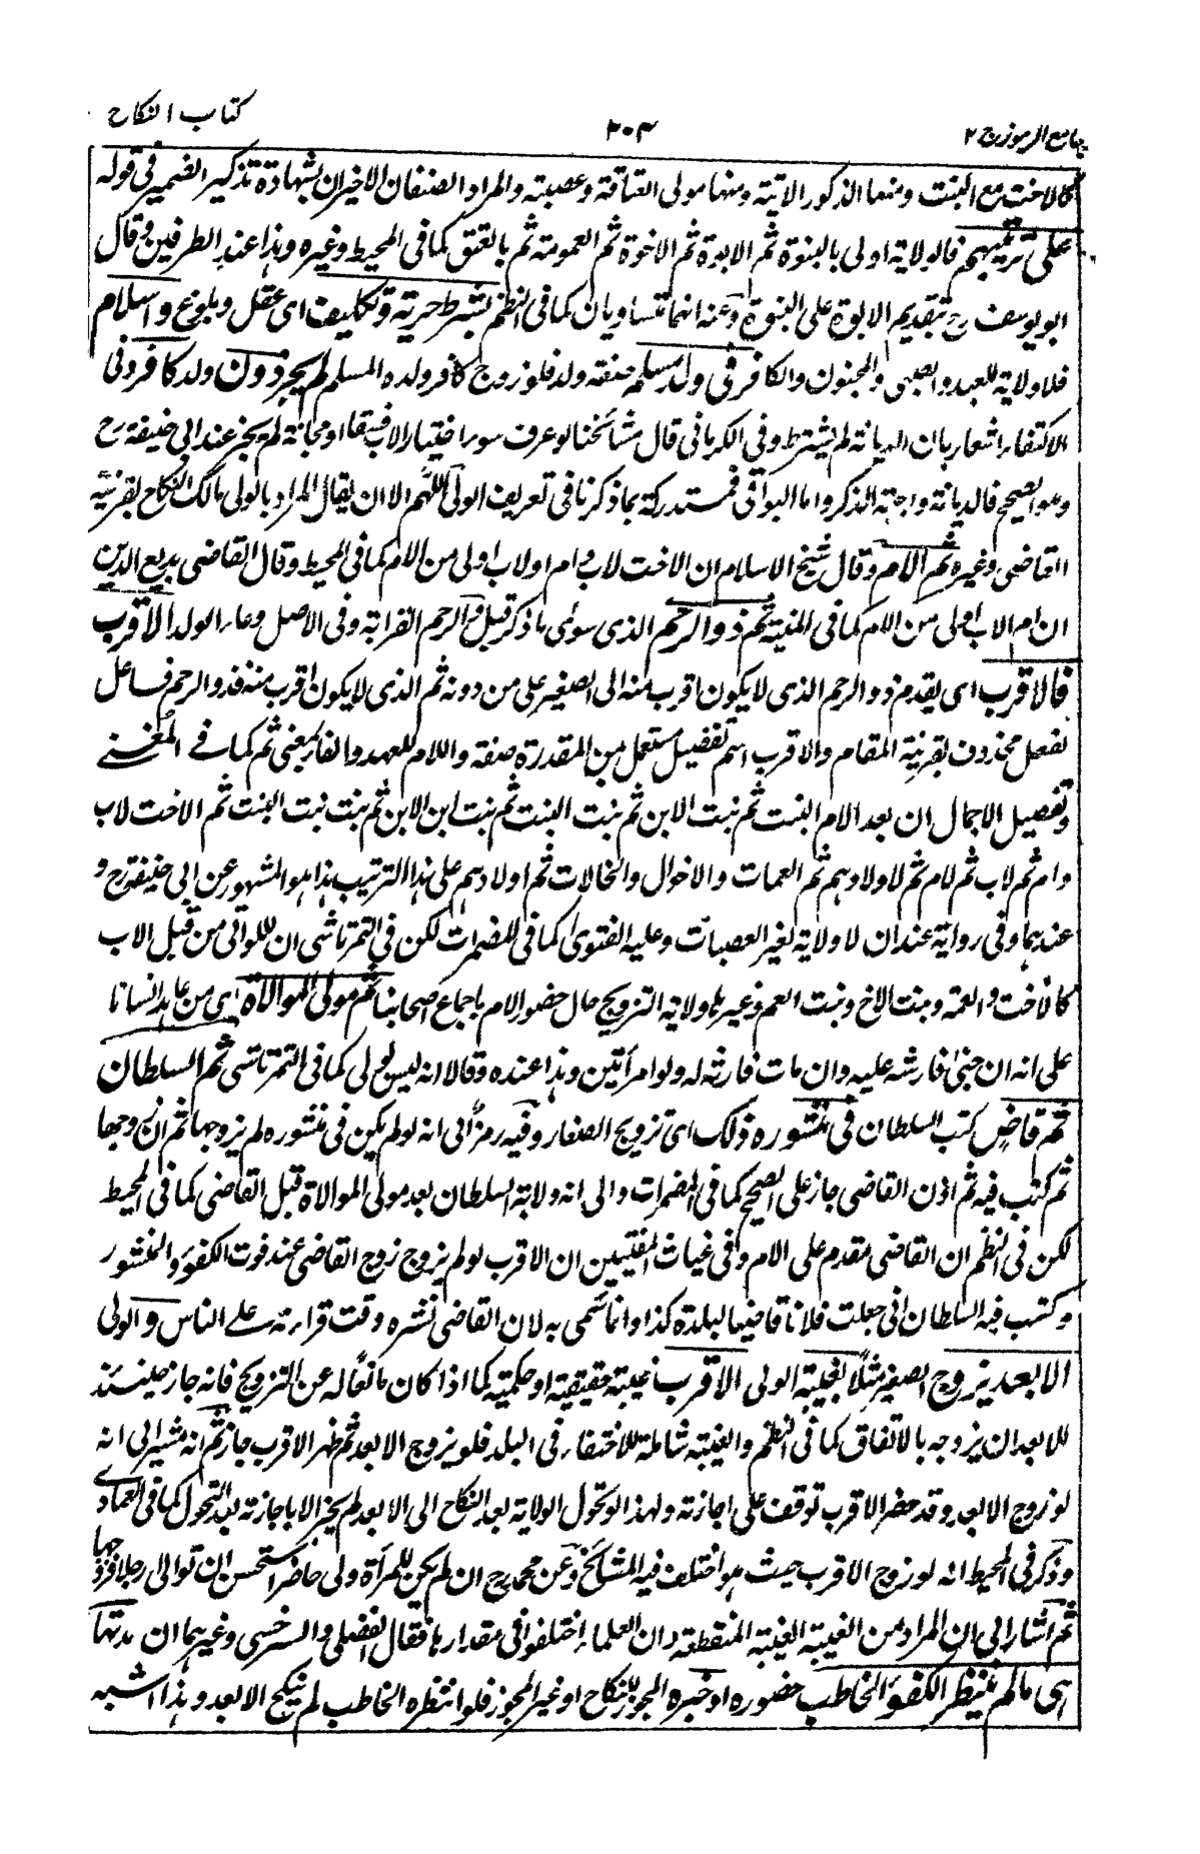 جامع الرموز ج ٢
٢٠٣
كتاب النكاح
كالاخت مع البنت ومنها الذكور الاتية ومنها مولى العتاقة وعصبته والمراد الصنفان الاخيران بشهادة تذكير الضمير فى قوله
على ترتيبهم فالولاية اولى بالبنوة ثم الابوة ثم الاخوة ثم العمومة ثم بالعتق كما فى المحيط وغيره وهذا عند الطرفين وقال
ابو يوسف رح بتقديم الابوة على البنوة وعنه انهما تتساويان كما فى النظم بشرط حرية وتكليف اى عقل وبلوغ واسلام
فلا ولاية للعبد والصبى والمجنون والكافر فى ولد مسلم صفته ولد فلو زوج كافر ولده المسلم لم يجز دون ولد كافر وفى
الاكتفاء اشعار بان الديانة لم يشترط وفى الكرمانى قال مشائخنا لو عرف سوء اختيار الاب فسقا او مجانة لم يجز عند ابى حنيفة رح
وهو الصحيح فالديانة واجبة الذكر واما البواقى فمستدركة بما ذكرنا فى تعريف الولى اللهم الا ان يقال المراد بالولى مالك النكاح بقرينة
القاضى وغيره ثم الام وقال شيخ الاسلام ان الاخت لاب وام اولاب اولى من الام كما فى المحيط وقال القاضى بديع الدين
ان ام الاب اولى من الام كما فى المنية ثم ذو الرحم الذى سوى ما ذكر قبل والرحم القرابة وفى الاصل وعاء الولد الاقرب
فالاقرب اى يقدم ذو الرحم الذى لا يكون اقرب منه الى الصغير على من دونه ثم الذى لا يكون اقرب منه فذو الرحم فاعل
لفعل محذوف بقرينة المقام والاقرب اسم تفضيل مستعمل بمن المقدرة صفته واللام للعهد والفاء بمعنى ثم كما فى المغنى
وتفصيل الاجمال ان بعد الام البنت ثم بنت الابن ثم بنت البنت ثم بنت ابن الابن ثم بنت بنت البنت ثم الاخت لاب
وام ثم لاب ثم لام ثم لاولادهم ثم العمات والاخوال والخالات ثم اولادهم على هذا الترتيب هذا هو المشهور عن ابى حنيفة رح و
عندهما وفى رواية عنه ان لا ولاية لغير العصبات وعليه الفتوى كما فى المضمرات لكن فى التمرتاشى ان للواتى من قبل الاب
كالاخت والعمة وبنت الاخ وبنت العم وغيرها ولاية التزويج حال حضور الام باجماع اصحابنا ثم مولى الموالاة اى من عاهد انسانا
على انه ان جنى فارشه عليه وان مات فارثه له ولو امرأتين وهذا عنده وقالا انه ليس بولى كما فى التمرتاشى ثم السلطان
ثم قاض كتب السلطان فى منشوره ذلك اى تزويج الصغار وفيه رمز الى انه لو لم يكن فى منشوره لم يزوجها ثم ان زوجها
ثم كتب فيه ثم اذن القاضى جاز على الصحيح كما فى المضمرات والى انه ولاية السلطان بعد مولى الموالاة قبل القاضى كما فى المحيط
لكن فى النظم ان القاضى مقدم على الام وفى غياث المفتيين ان الاقرب لو لم يزوج زوج القاضى عند فوت الكفؤ والمنشور
وكتب فيه السلطان انى جعلت فلانا قاضيا لبلدة كذا وانما سمى به لان القاضى نشره وقت قراءته على الناس والولى
الابعد يزوج الصغير مثلا بغيبة الولى الاقرب غيبة حقيقية او حكمية كما اذا كان مانعا له عن التزويج فانه جاز حينئذ
للابعد ان يزوجه بالاتفاق كما فى النظم والغيبة شاملة للاختفاء فى البلد فلو يزوج الابعد ثم ظهر الاقرب جاز ثم انه مشير الى انه
لو زوج الابعد وقد حضر الاقرب توقف على اجازته ولهذا لو تحول الولاية بعد النكاح الى الابعد لم يجز الا باجازته بعد التحول كما فى العمادى
وذكر فى المحيط انه لو زوج الاقرب حيث هو اختلف فيه المشائخ وعن محمد رح ان لم يكن للمرأة ولى حاضر استحسن ان توالى رجلا فزوجها
ثم اشار الى ان المراد من الغيبة الغيبة المنقطعة وان العلماء اختلفوا فى مقدارها فقال الفضلى والسرخسى وغيرهما ان مدتها
اى ما لم ينتظر الكفؤ الخاطب حضوره او خبره المجوز للنكاح او غير المجوز فلو انتظره الخاطب لم ينكح الابعد وهذا اشبه